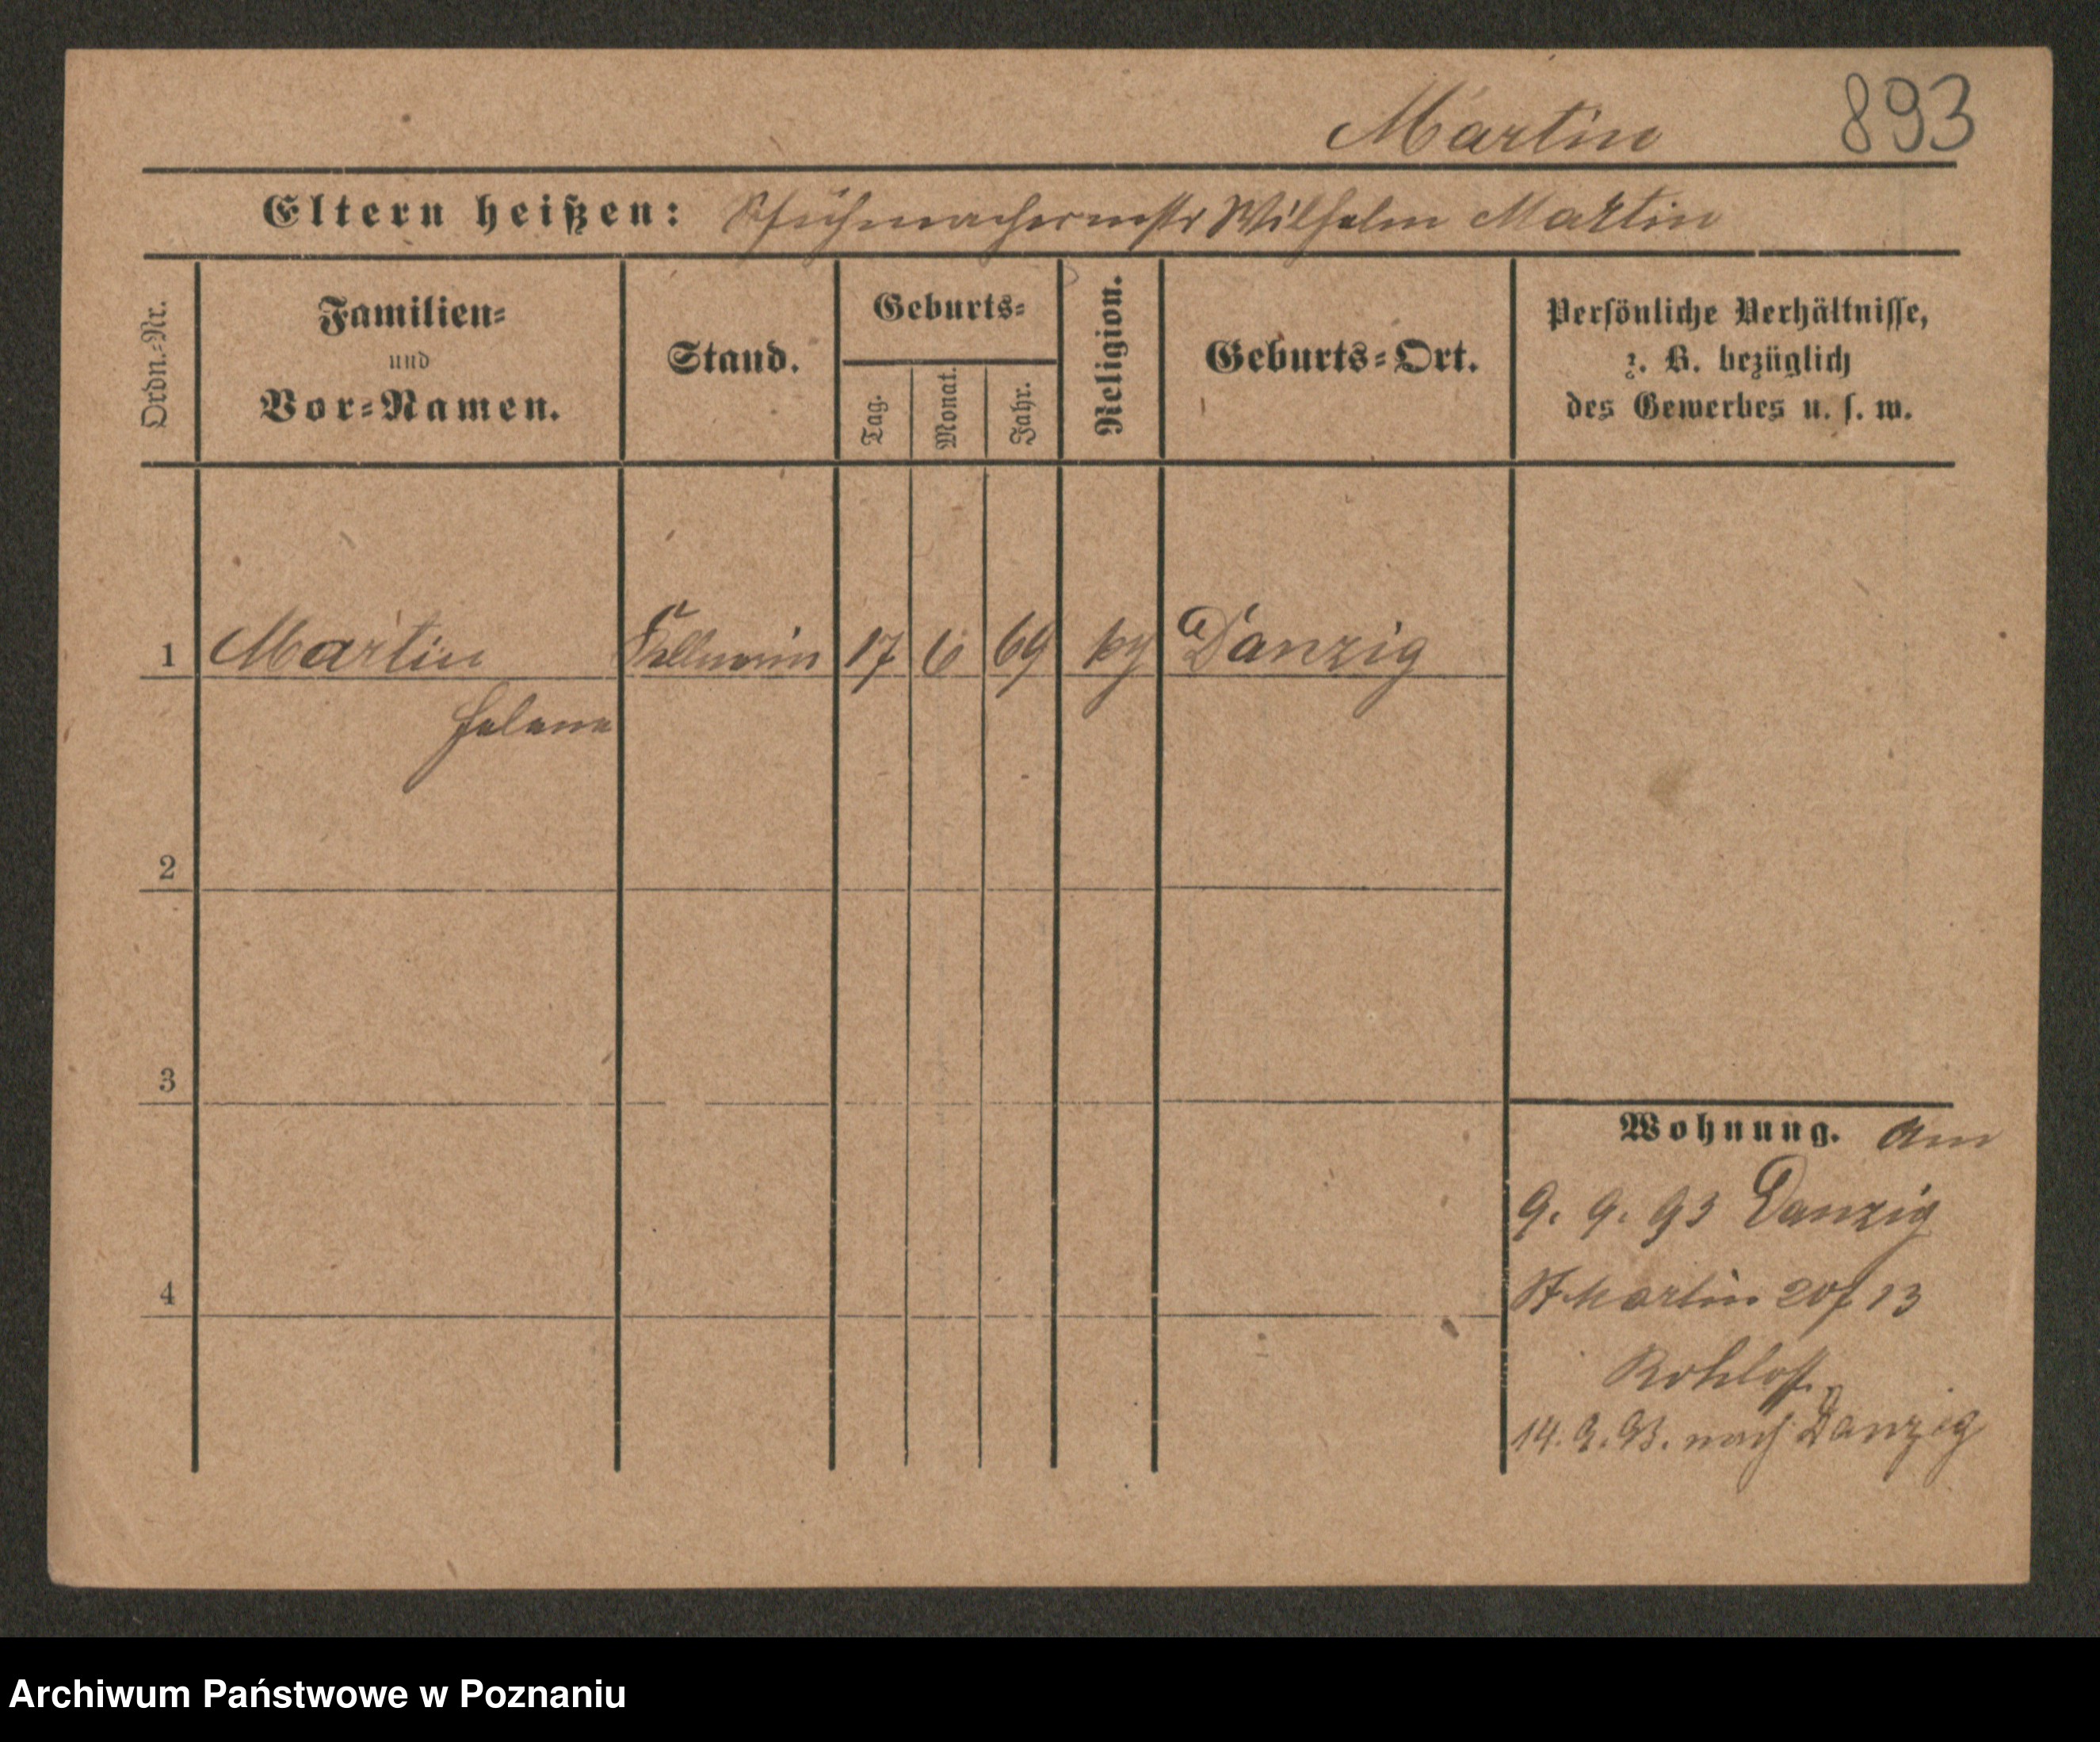 Martin 893
Eltern heißen: Schuhmachermstr Wilhelm Martin
Ordn.-Nr.
Familien-
und
Vor-Namen.
Stand.
Geburts-
Tag.
Monat.
Jahr.
Religion.
Geburts-Ort.
Persönliche Verhältnisse,
z. B. bezüglich
des Gewerbes u. s. w.
1 Martin Kellnerin 17 6 69 Danzig
Helene
2
3
4
Wohnung. am
9. 9. 93 Danzig
St Martin 20 13
Rohloff
14. 9. 93. nach Danzig
Archiwum Państwowe w Poznaniu